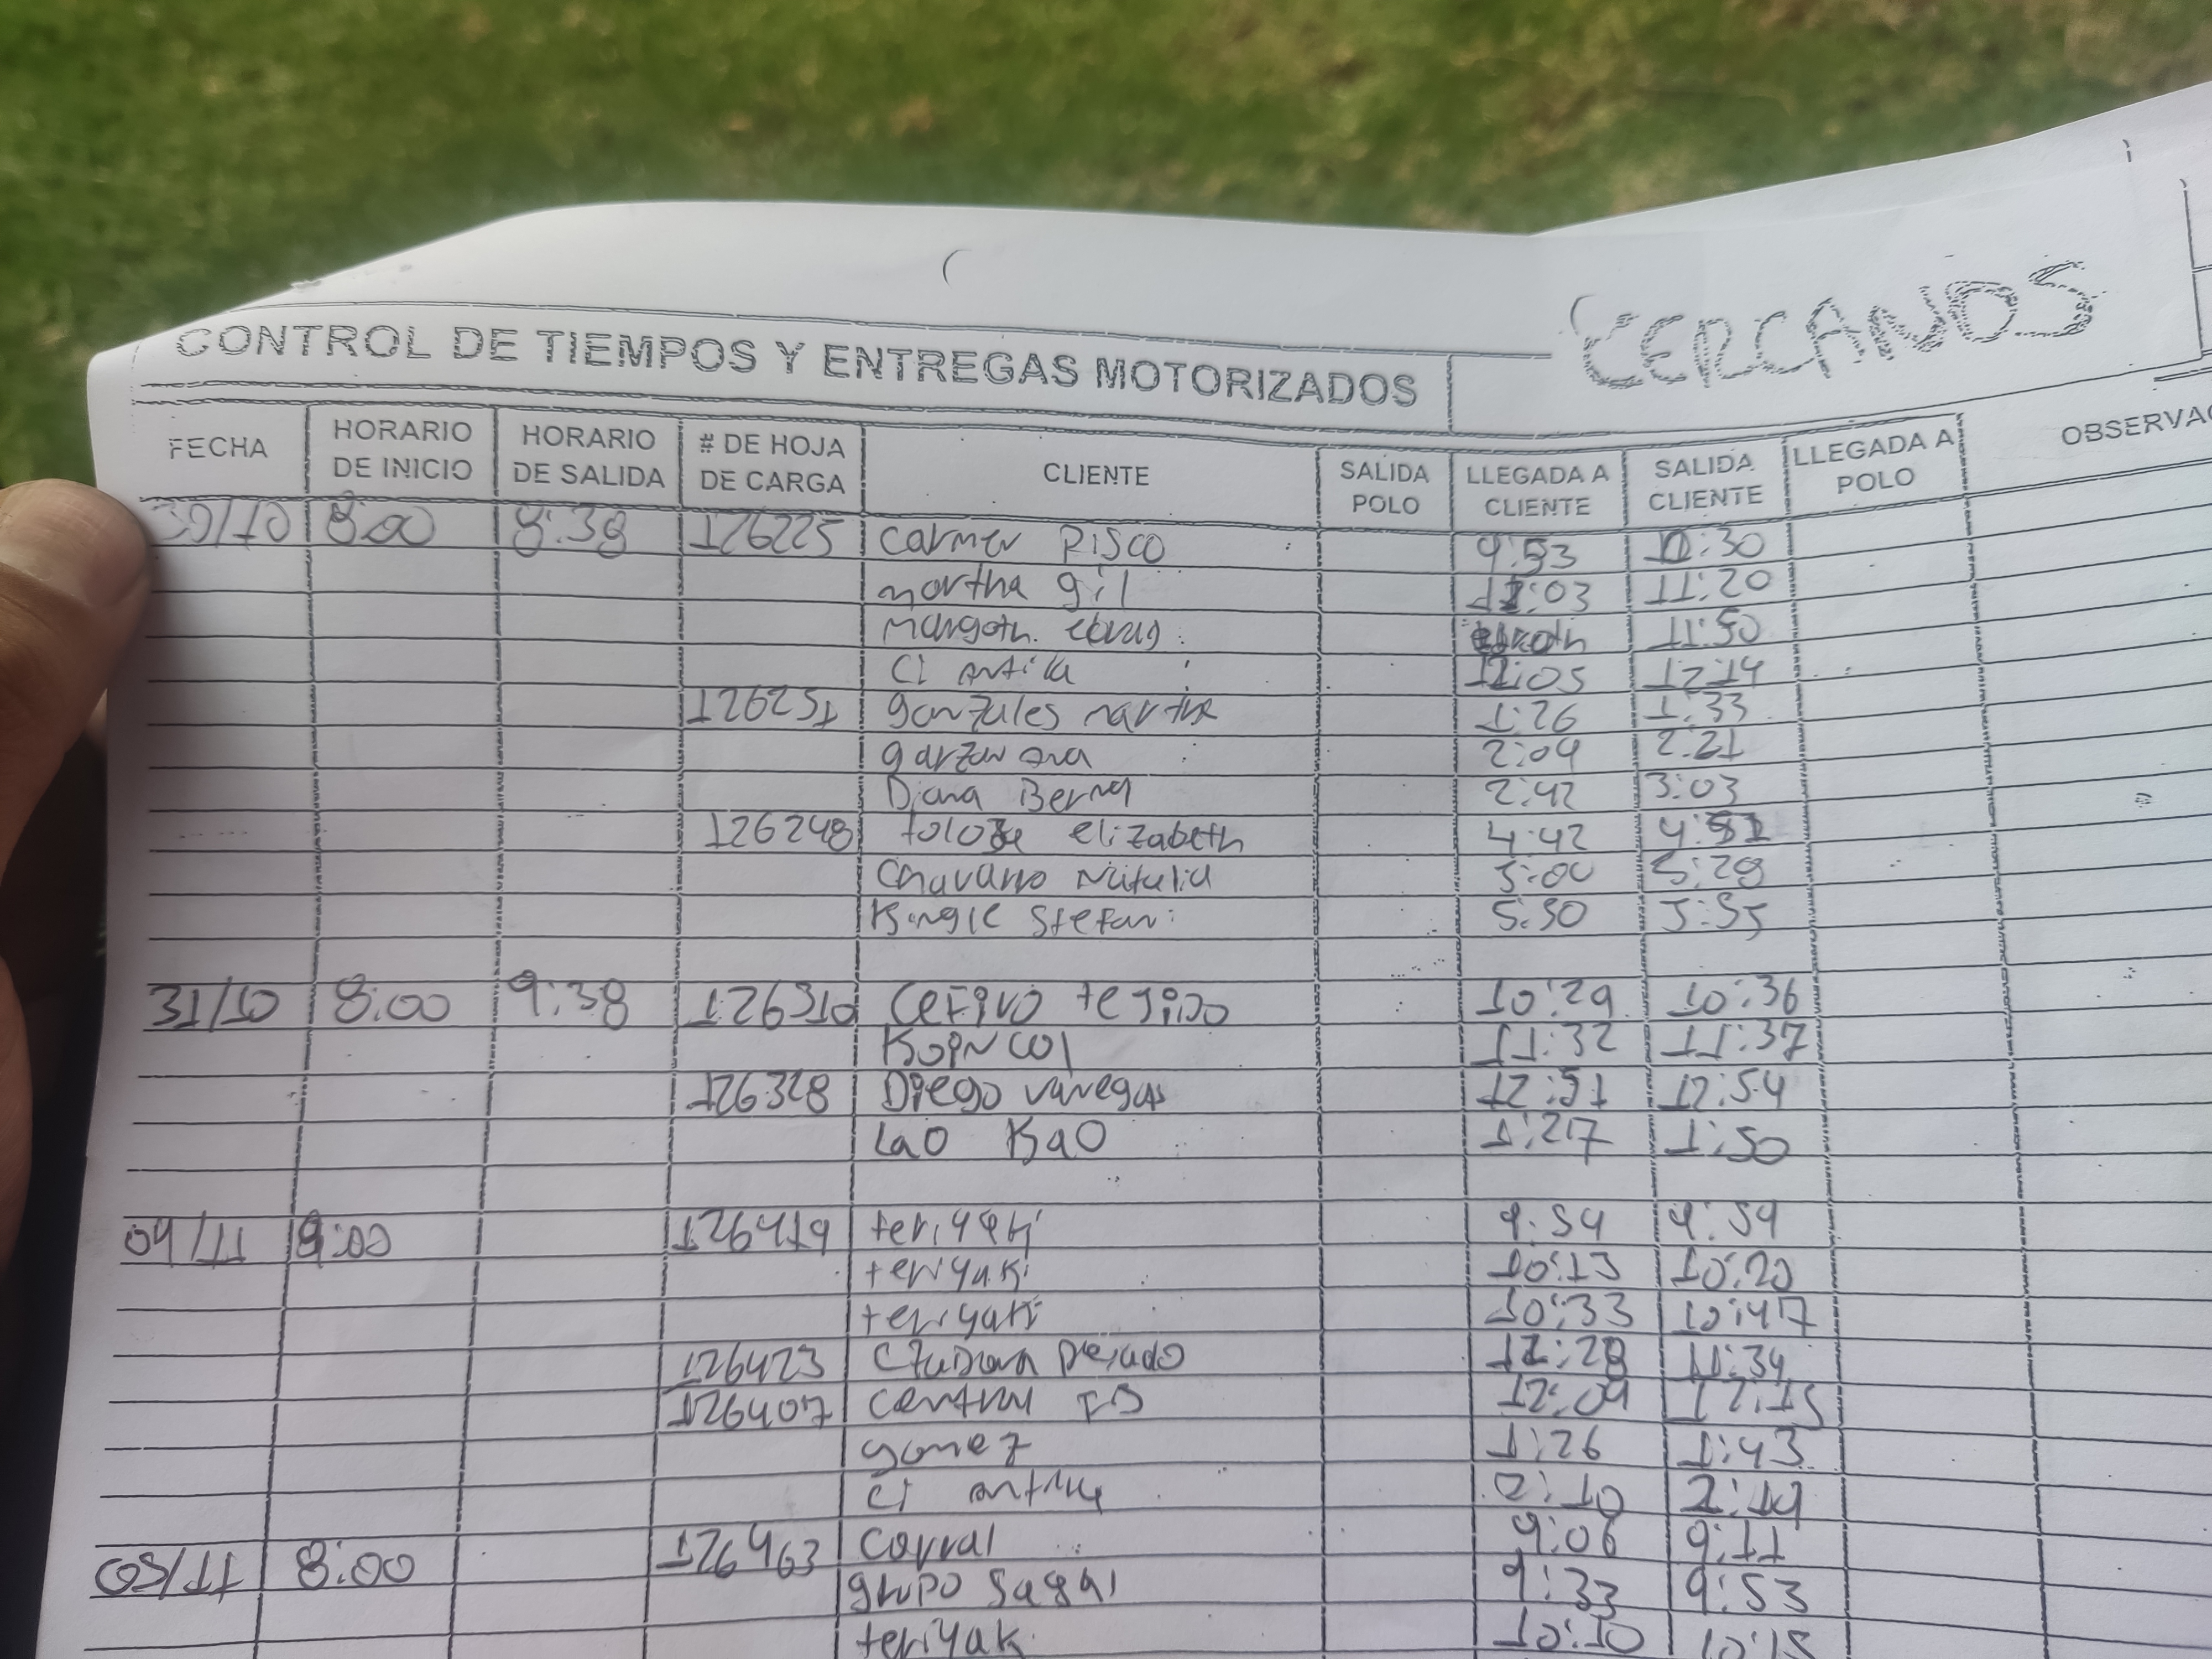 CERCANOS
CONTROL DE TIEMPOS Y ENTREGAS MOTORIZADOS
FECHA HORARIO DE INICIO HORARIO DE SALIDA # DE HOJA DE CARGA CLIENTE SALIDA POLO LLEGADA A CLIENTE SALIDA CLIENTE LLEGADA A POLO OBSERVAC
30/10 8:00 8:38 126225 Carmen Risco 9:53 :30
martha gil 11:03 11:20
Margoth. 11:50
CI 12:05 12:14
126251 gonzales martha 1:26 1:33
garzon ana 2:09 2:21
Diana Bernal 2:42 3:03
126248 elizabeth 4:42 4:51
Chavarro Natalia 5:00 5:28
Stefani 5:30 5:35
31/10 8:00 9:38 126310 Cefivo tegido 10:29 10:36
KOINCOl 11:32 11:37
126328 Diego vanegas 12:51 12:54
Lao Kao 1:27 1:50
04/11 8:00 126419 teriyaki 9:54 9:59
teriyaki 10:13 10:20
teriyaki 10:33 10:47
126423 11:28 11:34
126407 central 12:09 12:15
gomez 1:26 1:43
CI 2:10 2:19
05/11 8:00 126463 Corral 9:06 9:11
grupo Sagal 9:33 9:53
teriyak 10:10 10:15